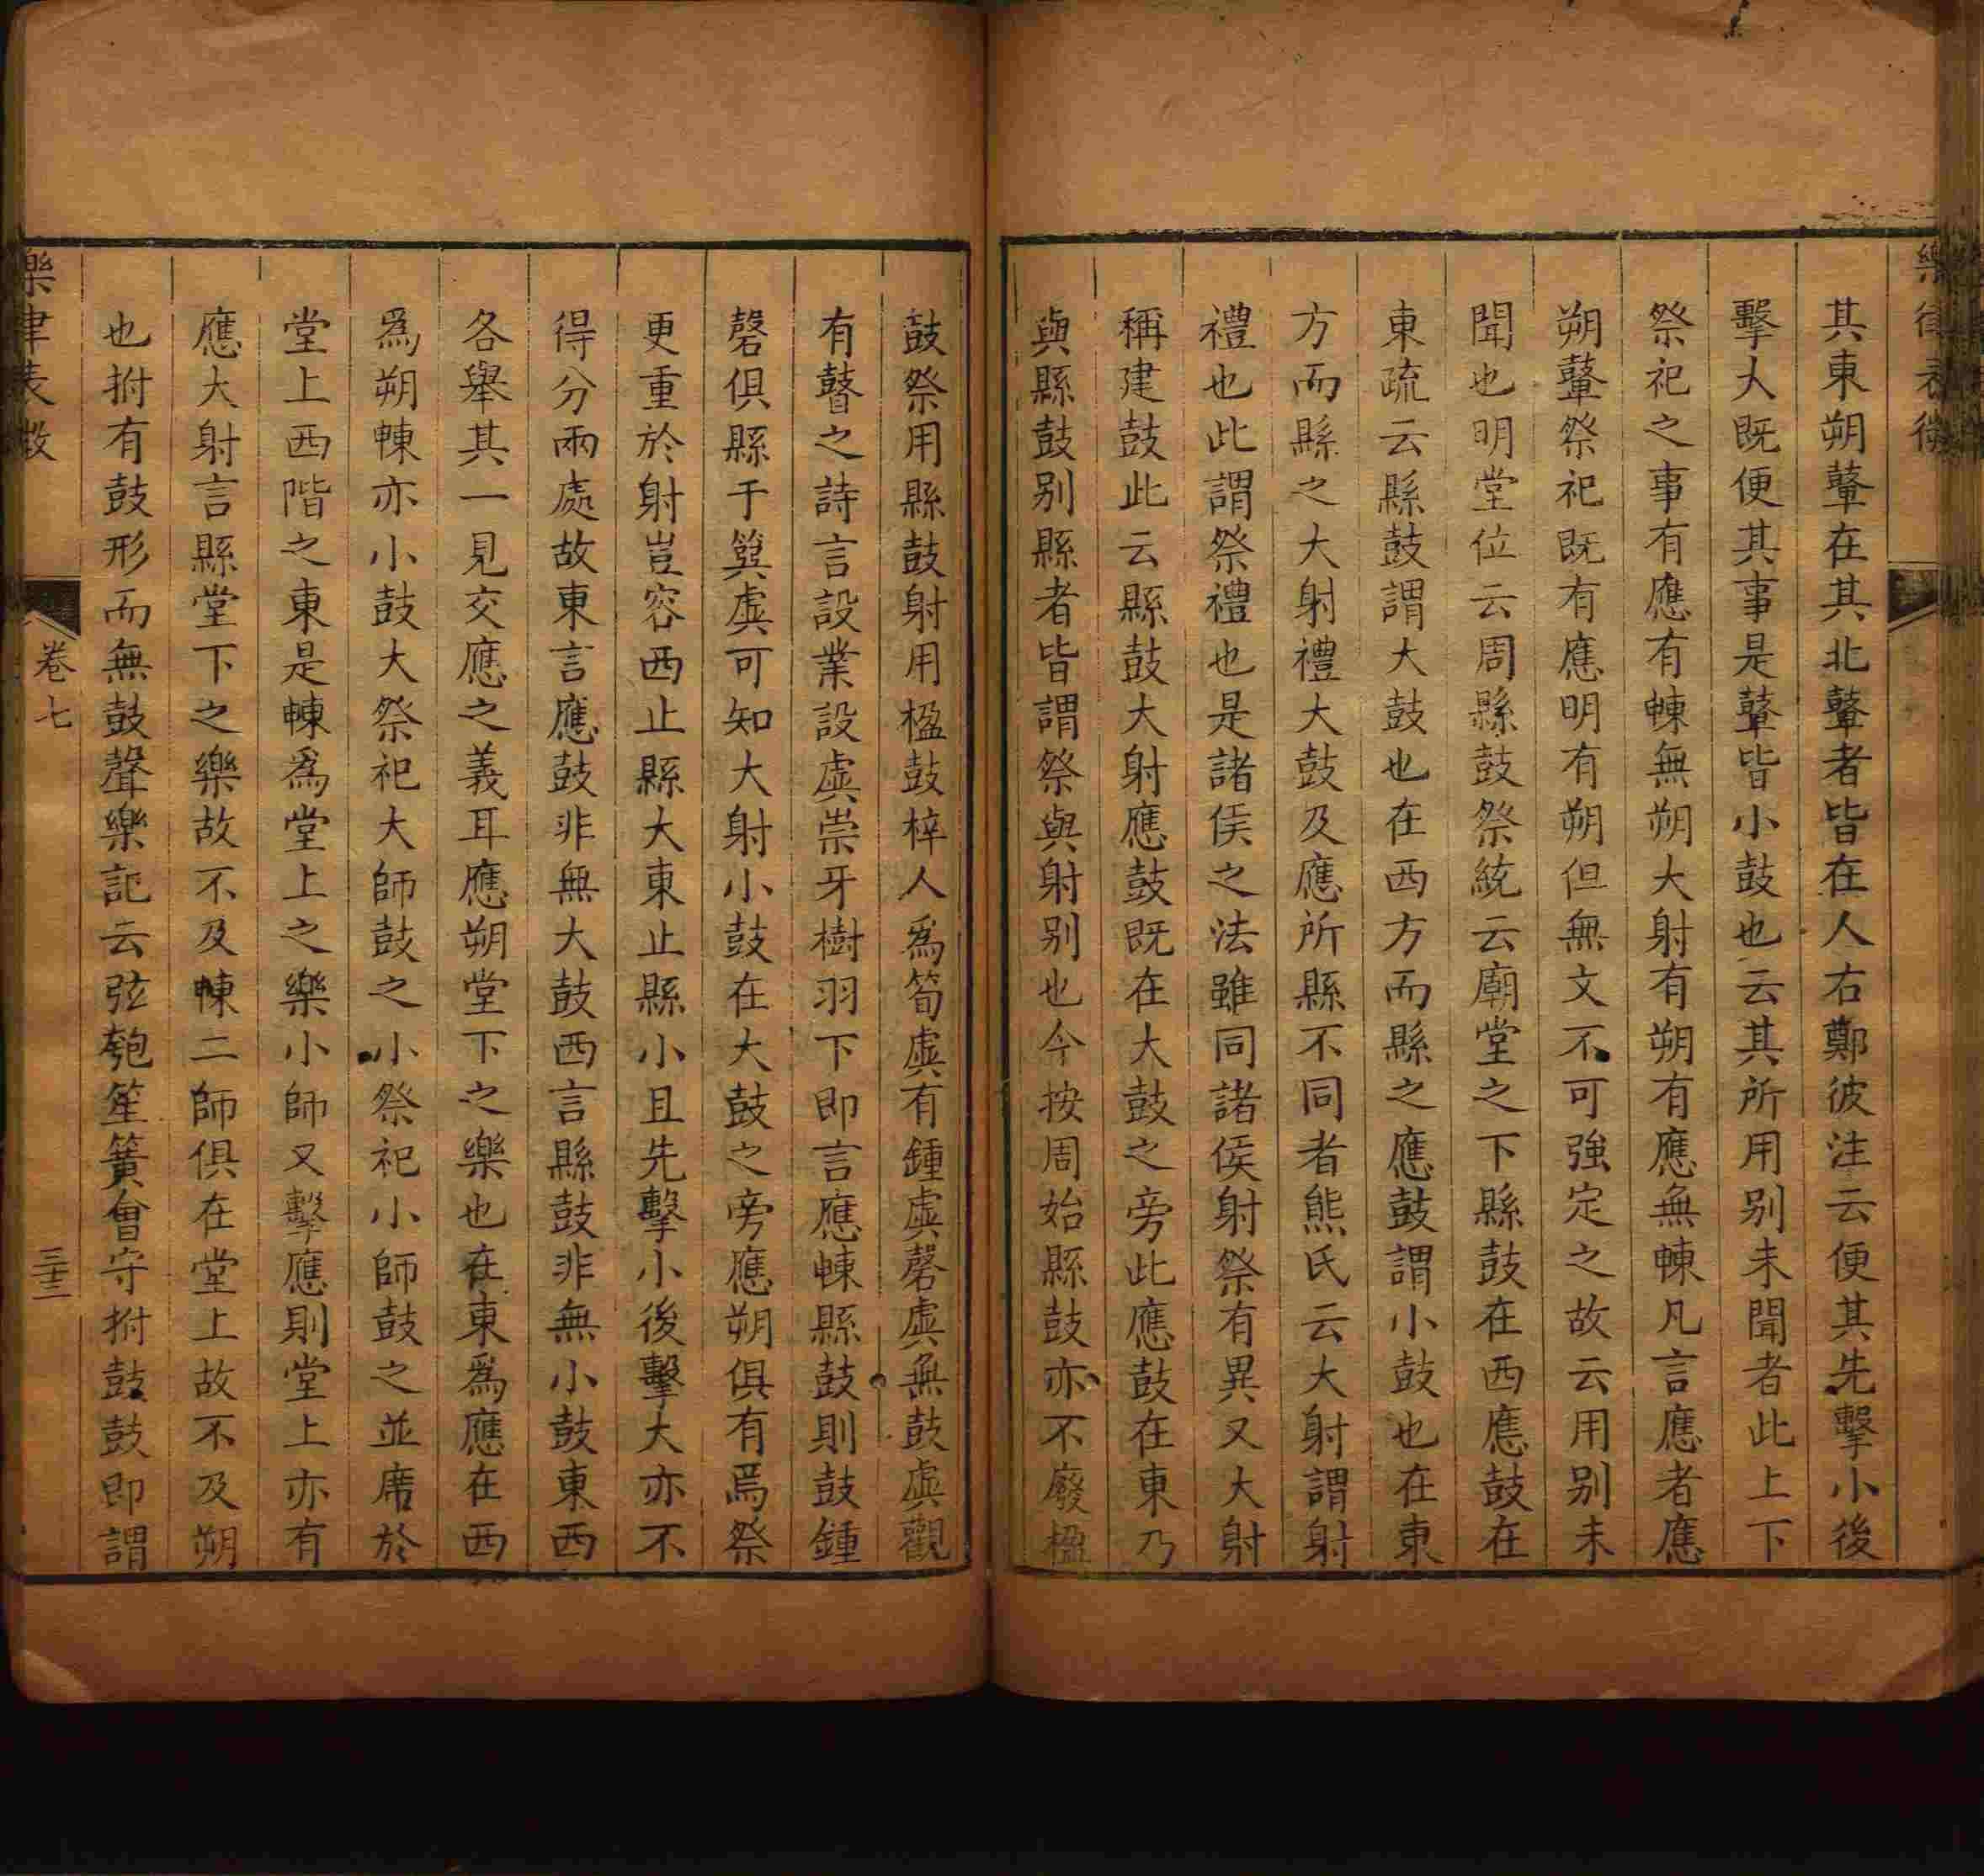 樂律表微
其東朔鼙在其北鼙者皆在人右鄭彼注云便其先擊小後
擊大既便其事是鼙皆小鼓也云其所用别未聞者此上下
祭祀之事有應有朄無朔大射有朔有應無朄凡言應者應
朔鼙祭祀既有應明有朔但無文不可強定之故云用别未
聞也明堂位云周縣鼓祭統云廟堂之下縣鼓在西應鼓在
東疏云縣鼓謂大鼓也在西方而縣之應鼓謂小鼓也在東
方而縣之大射禮大鼓及應所縣不同者熊氏云大射謂射
禮也此謂祭禮也是諸侯之法雖同諸侯射祭有異又大射
稱建鼓此云縣鼓大射應鼓既在大鼓之旁此應鼓在東乃
與縣鼓别縣者皆謂祭與射别也今按周始縣鼓亦不廢楹
鼓祭用縣鼓射用楹鼓梓人爲筍虡有鍾虡磬虡無鼓虡觀
有瞽之詩言設業設虡崇牙樹羽下即言應朄縣鼓則鼓鍾
磬俱縣于簨虡可知大射小鼓在大鼓之旁應朔俱有焉祭
更重於射豈容西止縣大東止縣小且先擊小後擊大亦不
得分兩處故東言應鼓非無大鼓西言縣鼓非無小鼓東西
各舉其一見交應之義耳應朔堂下之樂也在東爲應在西
爲朔朄亦小鼓大祭祀大師鼓之小祭祀小師鼓之並席於
堂上西階之東是朄爲堂上之樂小師又擊應則堂上亦有
應大射言縣堂下之樂故不及朄二師俱在堂上故不及朔
也拊有鼓形而無鼓聲樂記云弦匏笙簧會守拊鼓鼓即謂
樂律表微
卷七
三十三